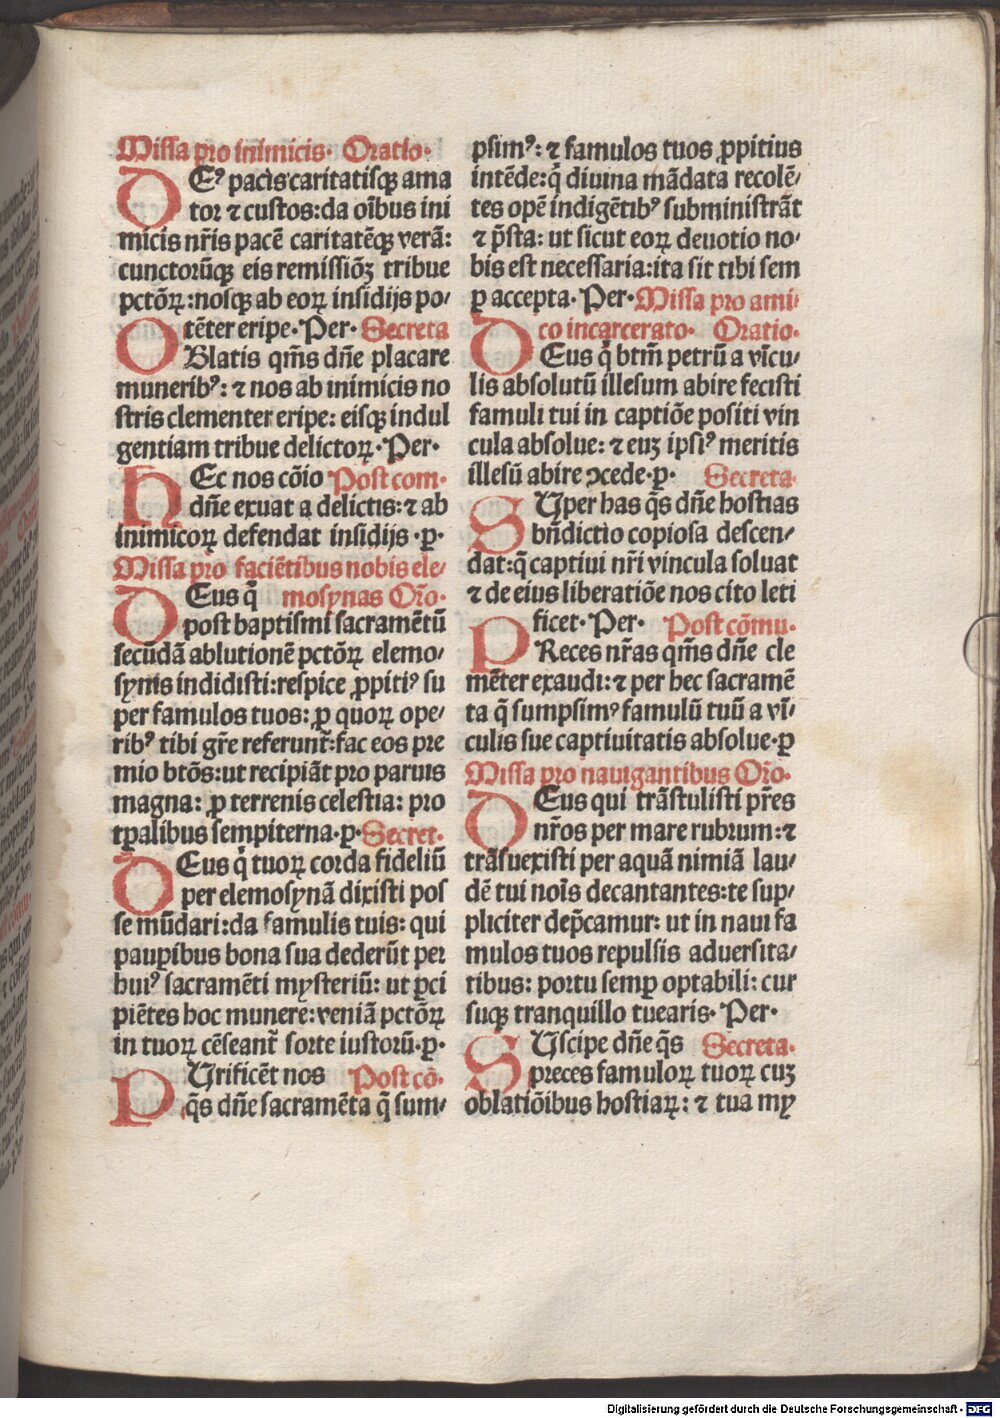 Missa pro inimicis. Oratio.
DEꝰ pacis caritatisqꝫ ama
tor ⁊ custos: da oı̄bus ini
micis nr̄is pacē caritatēqꝫ verā:
cunctorūqꝫ eis remissiōꝫ tribue
pctōꝝ: nosqꝫ ab eoꝝ insidijs po-
tēter eripe. Per. Secreta
OBlatis qm̄s dn̄e placare
muneribꝰ: ⁊ nos ab inimicis no
stris clementer eripe: eisqꝫ indul
gentiam tribue delictoꝝ. Per.
HEc nos cōio Post com.
dn̄e exuat a delictis: ⁊ ab
inimicoꝝ defendat insidijs. ꝑ.
Missa pro faciētibus nobis ele-
DEus q̄ mosynas Orō.
post baptismi sacramētū
secūdā ablutionē pctōꝝ elemo-
synis indidisti: respice ꝓpitiꝰ su
per famulos tuos: ꝑ quoꝝ ope-
ribꝰ tibi gr̄e referunt̄: fac eos pre
mio btōs: ut recipiāt pro paruis
magna: ꝑ terrenis celestia: pro
tꝑalibus sempiterna. ꝑ. Secret.
DEus q̄ tuoꝝ corda fideliū
per elemosynā dixisti pos
se mūdari: da famulis tuis: qui
pauꝑibus bona sua dederūt per
huiꝰ sacramēti mysteriū: ut ꝑci
piētes hoc munere: veniā pctōꝝ
in tuoꝝ cēseant̄ sorte iustorū. ꝑ.
PUrificēt nos Post cō.
q̄s dn̄e sacramēta q̄ sum-
psimꝰ: ⁊ famulos tuos ꝓpitius
intēde: q̄ diuina mādata recolē-
tes opē indigētibꝰ subministrāt
⁊ p̄sta: ut sicut eoꝝ deuotio no-
bis est necessaria: ita sit tibi sem
ꝑ accepta. Per. Missa pro ami-
co incarcerato. Oratio.
DEus q̄ btm̄ petrū a vı̄cu-
lis absolutū illesum abire fecisti
famuli tui in captiōe positi vin
cula absolue: ⁊ euꝫ ipsiꝰ meritis
illesū abire ↄcede. ꝑ. Secreta.
SUper has q̄s dn̄e hostias
bn̄dictio copiosa descen-
dat: q̄ captiui nr̄i vincula soluat
⁊ de eius liberatiōe nos cito leti
ficet. Per. Post cōmu.
PReces nr̄as qm̄s dn̄e cle
mēter exaudi: ⁊ per hec sacramē
ta q̄ sumpsimꝰ famulū tuū a vı̄-
culis sue captiuitatis absolue. ꝑ
Missa pro nauigantibus Orō.
DEus qui trāstulisti pr̄es
nr̄os per mare rubrum: ⁊
trāsuexisti per aquā nimiā lau-
dē tui noı̄s decantantes: te sup-
pliciter dep̄camur: ut in naui fa
mulos tuos repulsis aduersita-
tibus: portu semꝑ optabili: cur
suqꝫ tranquillo tuearis. Per.
SUscipe dn̄e q̄s Secreta.
preces famuloꝝ tuoꝝ cuꝫ
oblatiōibus hostiaꝝ: ⁊ tua my
Digitalisierung gefördert durch die Deutsche Forschungsgemeinschaft - DFG